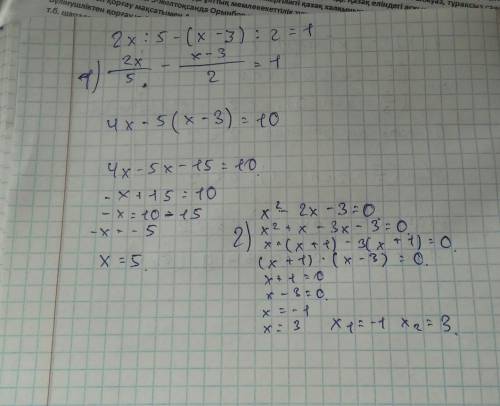 2x : 5 - (x - 3) : 2 = 1
1) 2x/5 - x-3/2 = 1
4x - 5(x - 3) = 10
4x - 5x - 15 = 10
-x + 15 = 10
-x = 10 - 15
-x = -5
x = 5
2) x² - 2x - 3 = 0
x² + x - 3x - 3 = 0
x · (x + 1) - 3(x + 1) = 0
(x + 1) · (x - 3) = 0
x + 1 = 0
x - 3 = 0
x = -1
x = 3 x₁ = -1 x₂ = 3